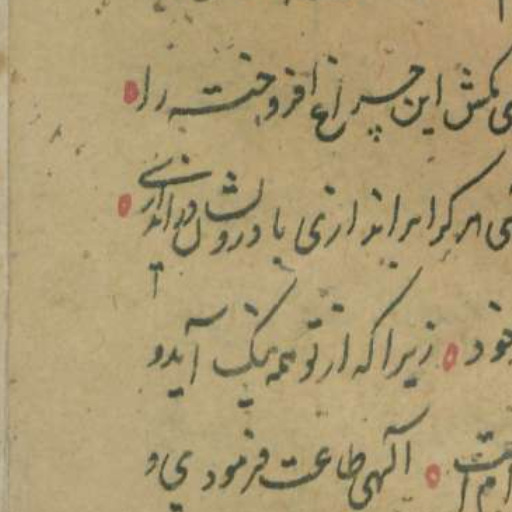 مکش این چراغ افروخته را
هر کرا براندازی با درویشان دراندازی
خود زیرا که از تو همه نیک آید و
الهی طاعت فرمودی و